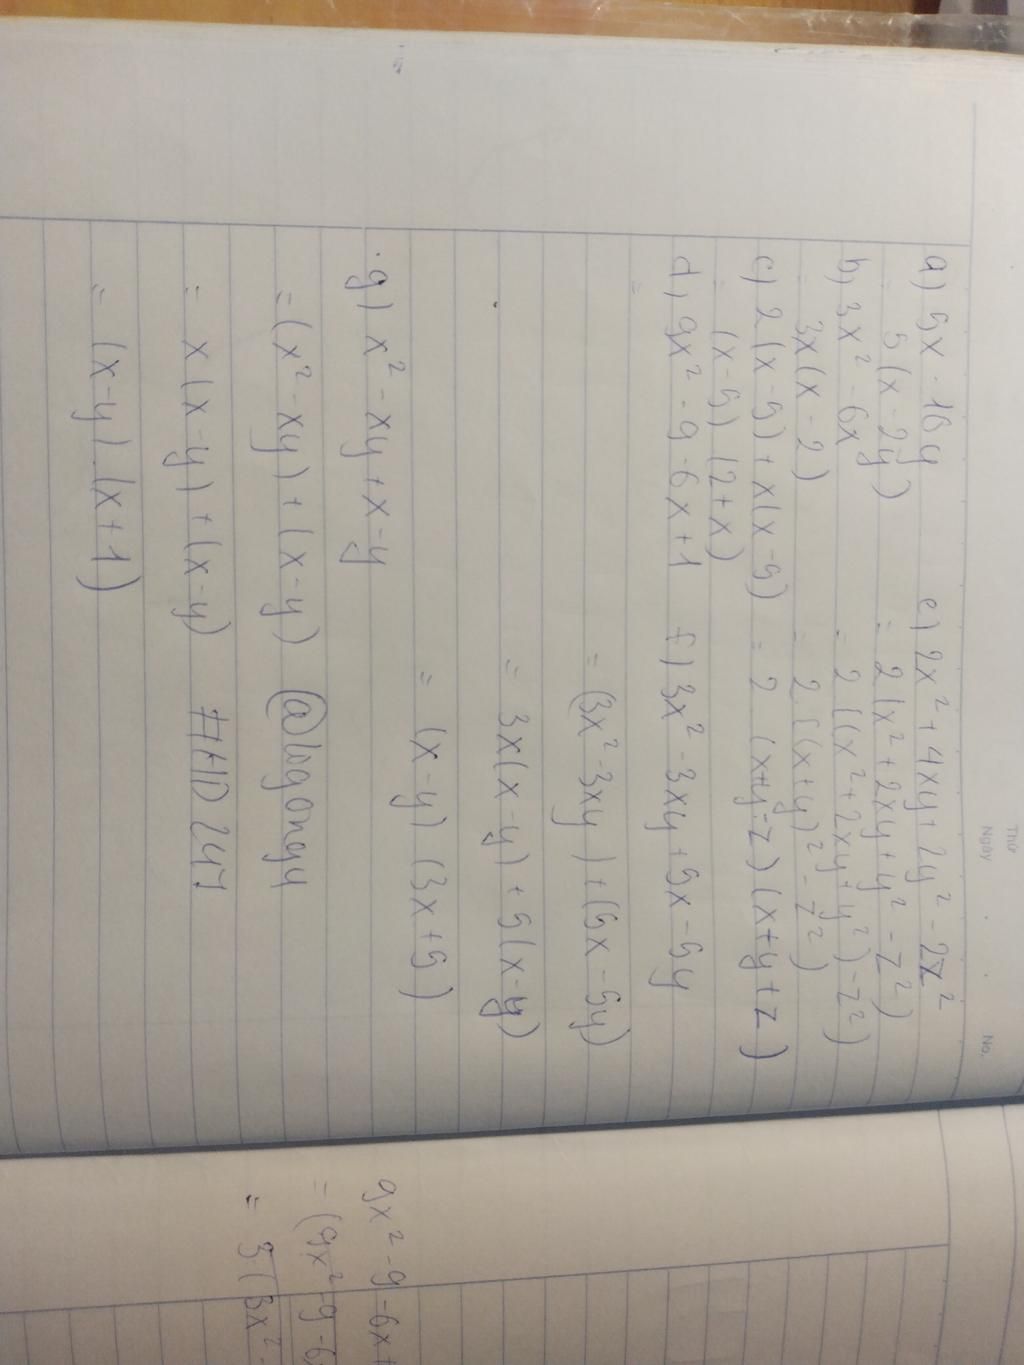 Thứ
Ngày
No.
a) 5x - 10y
5(x - 2y)
b) 3x² - 6x
3x(x - 2)
c) 2(x-5) + x(x-5)
(x-5) (2+x)
d) 9x² - 9 - 6x + 1
=
e) 2x² + 4xy + 2y² - 2z²
= 2(x² + 2xy + y² - z²)
= 2[(x² + 2xy + y²) - z²)
= 2[(x+y)² - z²)
= 2 (x+y-z) (x+y+z)
f) 3x² - 3xy + 5x - 5y
= (3x² - 3xy) + (5x - 5y)
= 3x(x-y) + 5(x-y)
= (x-y) (3x+5)
g) x² - xy + x - y
= (x² - xy) + (x-y)
= x(x-y) + (x-y)
= (x-y) (x+1)
@logong4
#HD247
9x² - 9 - 6x +
= (9x² - 9 - 6
= 3(3x² -